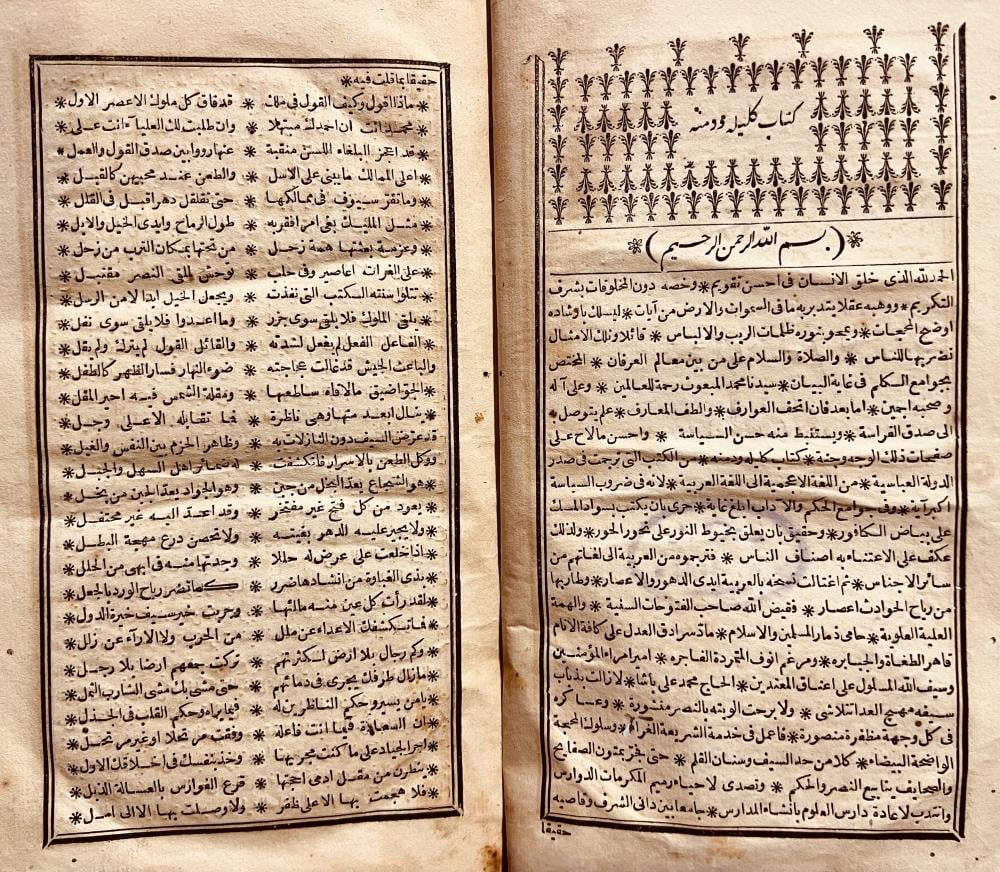 كتاب كليله ودمنه
(بسم الله الرحمن الرحيم)
الحمد لله الذى خلق الانسان فى احسن تقويم * وخصه دون المخلوقات بشرف
التكريم * ووهبه عقلا يتدبر به ما فى السموات والارض من آيات * ليسلك بارشاده
اوضح المحجات * ويمحو بنوره ظلمات الريب والالباس * قائلا وتلك الامثال
نضربها للناس * والصلاة والسلام على من بين معالم العرفان * المختص
بجوامع الكلم فى غاية البيان * سيدنا محمد المبعوث رحمة للعالمين * وعلى آله
وصحبه اجمعين * اما بعد فان اتحف العوارف * والطف المعارف * علم يتوصل به
الى صدق الفراسة * ويستنبط منه حسن السياسة * واحسن ما لاح على
صفحات ذلك الوجه وجنة * كتاب كليله ودمنه * من الكتب التى ترجمت فى صدر
الدولة العباسية * من اللغة الاعجمية الى اللغة العربية * لانه فى ضروب السياسة
اكبر آية * وفى جوامع الحكم والآداب ابلغ غاية * حرى بان يكتب بسواد المسك
على بياض الكافور * وحقيق بان يعلق بخيوط النور على نحور الحور * ولذلك
عكف على الاعتناء به اصناف الناس * فترجموه من العربية الى لغاتهم من
سائر الاجناس * ثم اغتالت نسخته بالعربية ايدى الدهور والاعصار * وطار بها
من رياح الحوادث اعصار * فقيض الله صاحب الفتوحات السنية * والهمة
العلية العلوية * حامى ذمار المسلمين والاسلام * ماد سرادق العدل على كافة الانام
قاهر الطغاة والجبابره * ومرغم انوف المتمردة الفاجره * امير امراء المؤمنين
وسيف الله المسلول على اعناق المعتدين * الحاج محمد على باشا * لا زالت بذباب
سيفه مهيج العدا تتلاشى * ولا برحت الويته بالنصر منشورة * وعساكره
فى كل وجهة مظفرة منصورة * فاعمل فى خدمة الشريعة الغراء * وسلوك المحجة
الواضحة البيضاء * كلا من حد السيف وسنان القلم * حتى فجر بمتون الصفايح
والصحايف ينابيع النصر والحكم * وتصدى لاحياء رميم المكرمات الدوارس
وانتدب لاعادة دارس العلوم بانشاء المدارس * جامعا بين دانى الشرف وقاصيه
حقيقا
حقيقا بما قلت فيه *
* ماذا اقول وكيف القول فى ملك * قد فاق كل ملوك الاعصر الاول *
* محمد انت ان احمدك مبتهلا * وان طلبت لك العلياء انت على *
* قد اعجز البلغاء اللسن منقبة * عنها رووا بين صدق القول والعمل *
* اعلى الممالك ما يبنى على الاسل * والطعن عند محبيهن كالقبل *
* وما تقر سيوف فى ممالكها * حتى تقلقل دهرا قبل فى القلل *
* مثل المليك بغى امرا فقربه * طول الرماح وايدى الخيل والابل *
* وعزمة بعثتها همة زحل * من تحتها بمكان الترب من زحل *
* على الفرات اعاصير وفى حلب * توحش لملقى النصر مقتبل *
* تتلو اسنته الكتب التى نفذت * ويجعل الخيل ابدالا من الرسل *
* يلقى الملوك فلا يلقى سوى جزر * وما اعدوا فلا يلقى سوى نفل *
* الفاعل الفعل لم يفعل لشدته * والقائل القول لم يترك ولم يقل *
* والباعث الجيش قد غالت عجاجته * ضوء النهار فسار الظهر كالطفل *
* الجو اضيق ما لاقاه ساطعها * ومقلة الشمس فيه احير المقل *
* ينال ابعد منها وهى ناظرة * فما تقابله الا على وجل *
* قد عرض السيف دون النازلات به * وظاهر الحزم بين النفس والغيل *
* ووكل الطعن بالاسرار فانكشفت * له ضمائر اهل السهل والجبل *
* هو الشجاع يعد البخل من جبن * وهو الجواد يعد الجبن من بخل *
* يعود من كل فتح غير مفتخر * وقد اغذ اليه غير محتفل *
* ولا يجير عليه الدهر بغيته * ولا تحصن درع مهجة البطل *
* اذا خلعت على عرض له حللا * وجدتها منه فى ابهى من الحلل *
* بذى الغباوة من انشادها ضرر * كما تضر رياح الورد بالجعل *
* لقد رأت كل عين منه مالئها * وجربت خير سيف خيرة الدول *
* فما تكشفك الاعداء عن ملل * من الحرب ولا الآراء عن زلل *
* وكم رجال بلا ارض لكثرتهم * تركت جمعهم ارضا بلا رجل *
* ما زال طرفك يجرى فى دمائهم * حتى مشى بك مشى الشارب الثمل *
* يا من يسير وحكم الناظرين له * فيما يراه وحكم القلب فى الجذل *
* ان السعادة فيما انت فاعله * وفقت مرتحلا او غير مرتحل *
* اجر الجياد على ما كنت مجريها * وخذ بنفسك فى اخلاقك الاول *
* ينظرن من مقل ادمى احجتها * قرع الفوارس بالعسالة الذبل *
* فلا هجمت بها الا على ظفر * ولا وصلت بها الا الى امل *